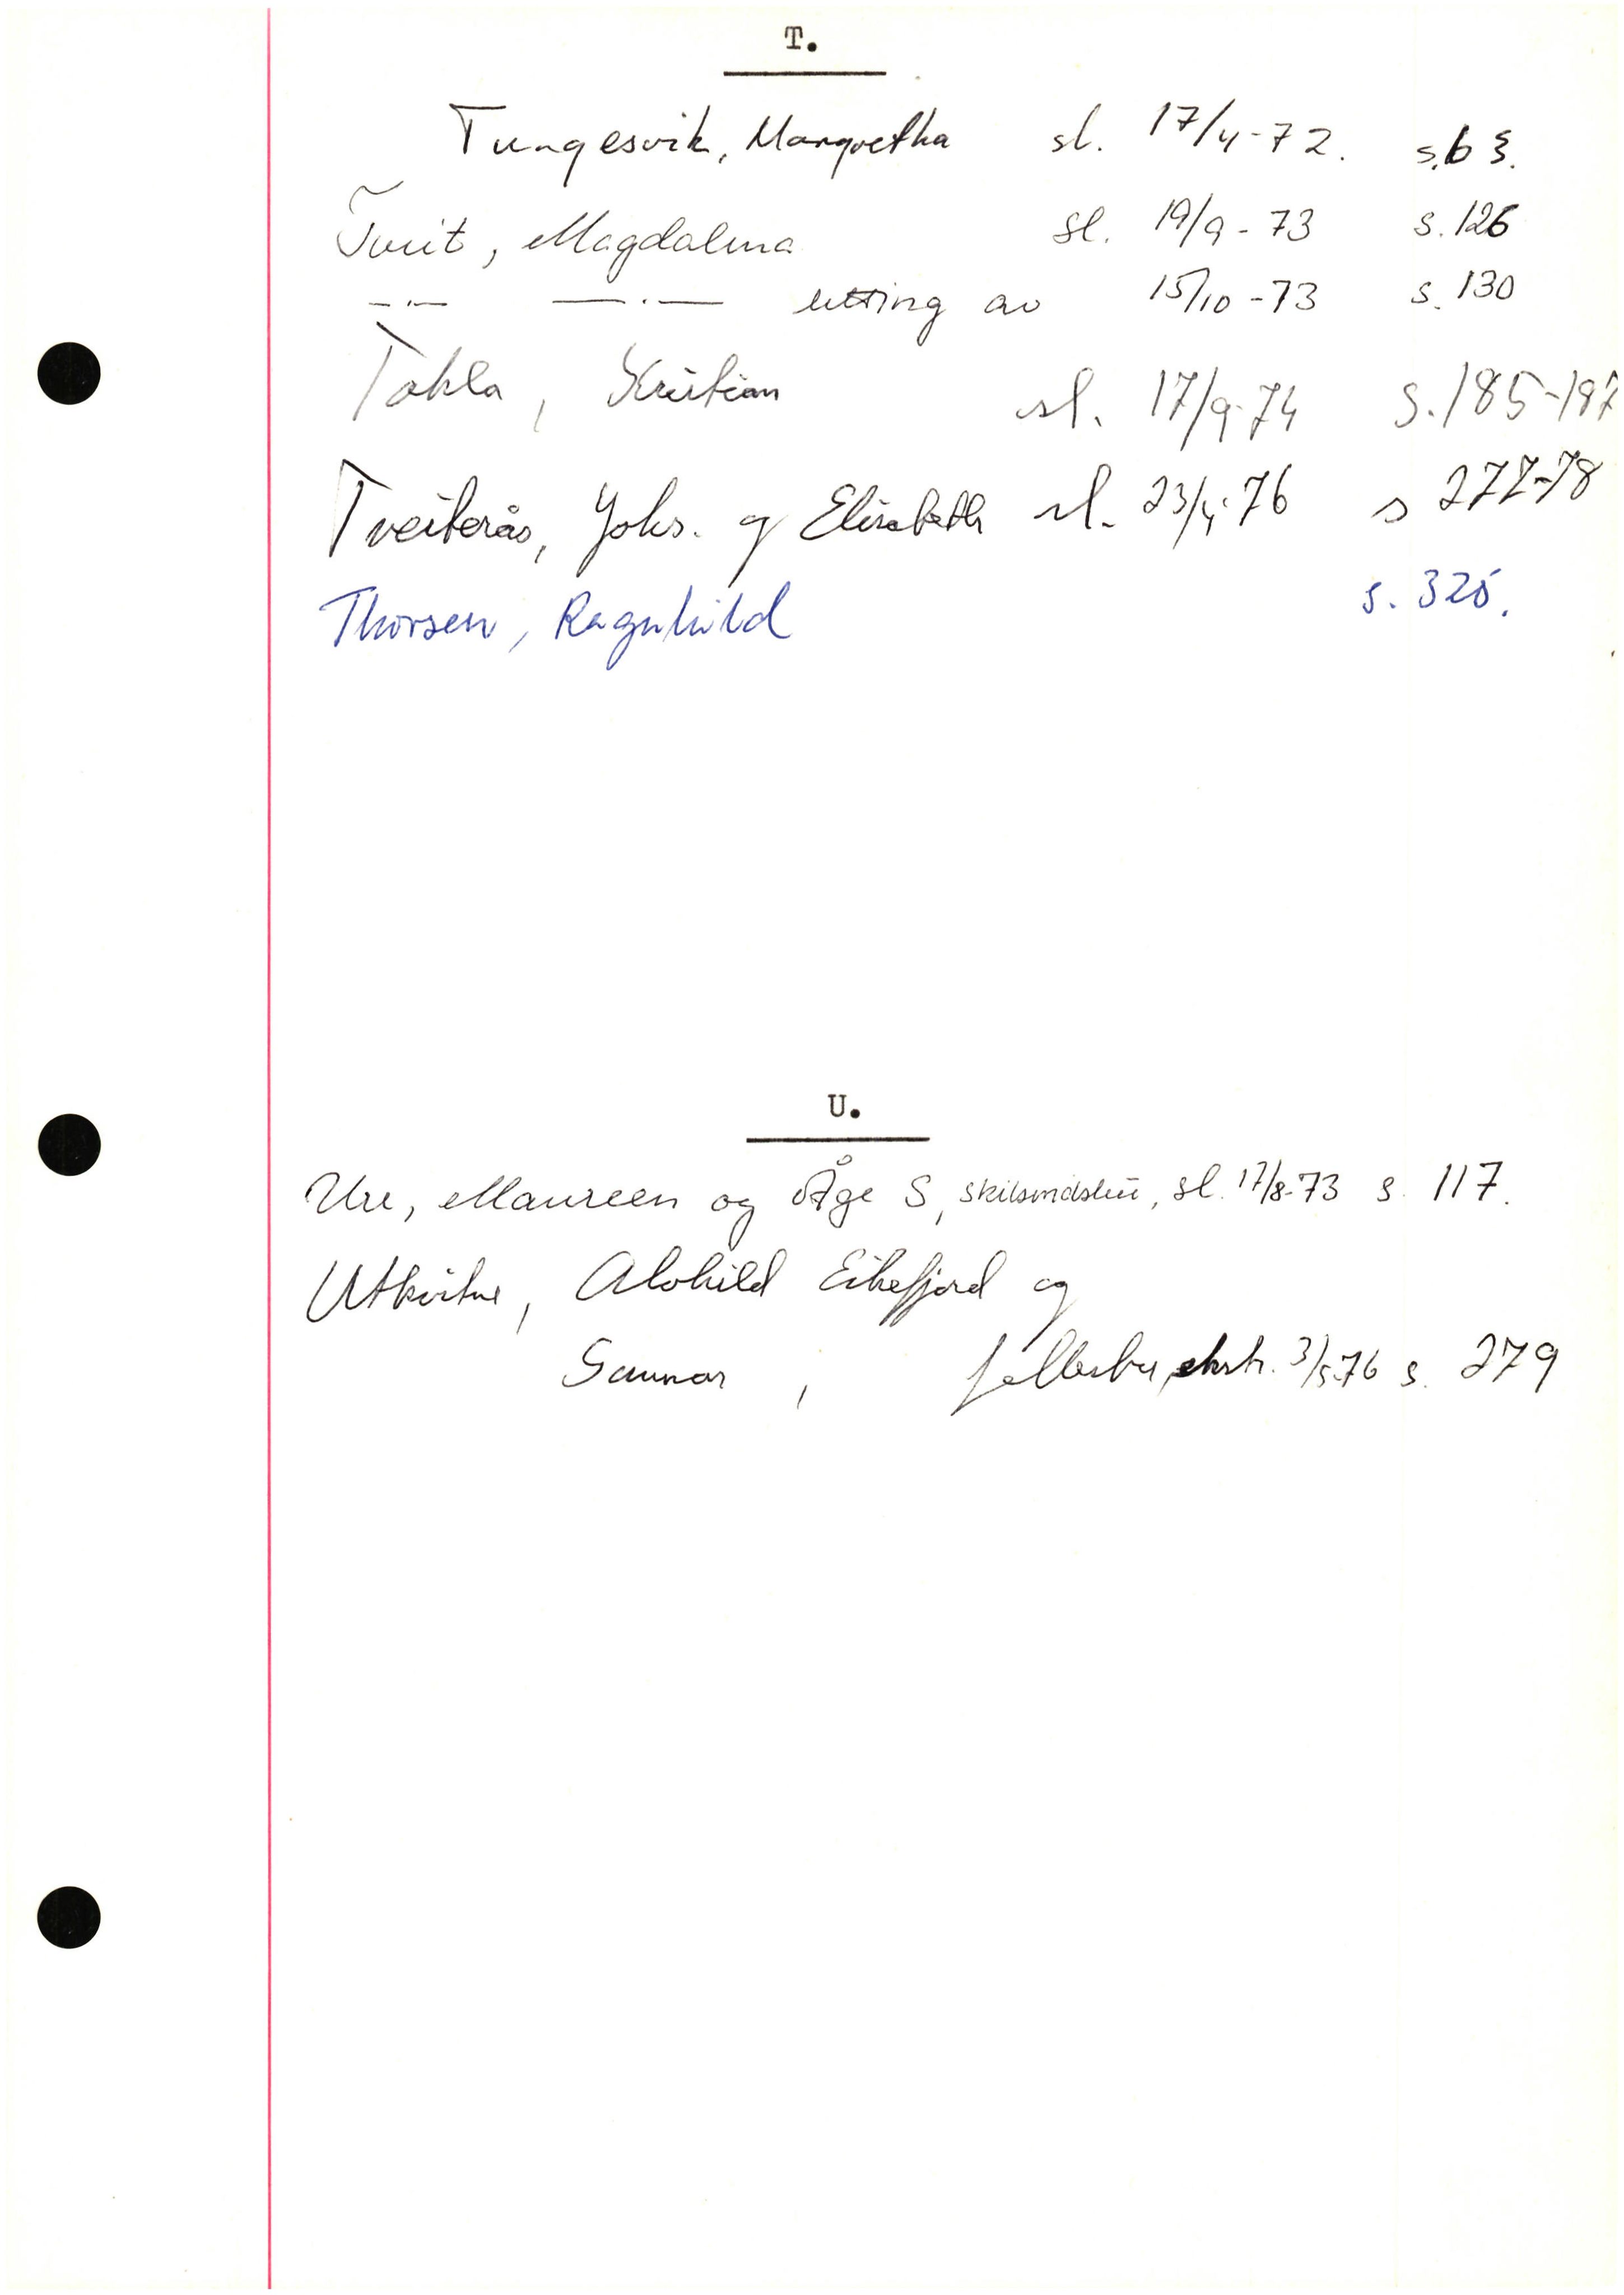 T.
Tungesvik, Margretha sl. 17/4-72. s.63.
Tveit, Magdalena sl. 19/9-73 s.126
—"— —"— utting av 15/10-73 s.130
Takla, Kristian sl. 17/9-74 s.185-187
Tveiterås, Johs. og Elisabeth sl. 23/4-76 s 277-78
Thorsen, Ragnhild s. 325.
U.
Ure, Maureen og Åge S, sl. 17/8-73 s. 117.
Utkvitne, Alvhild Eikefjord og
Gunnar, 3/5-76 s. 279